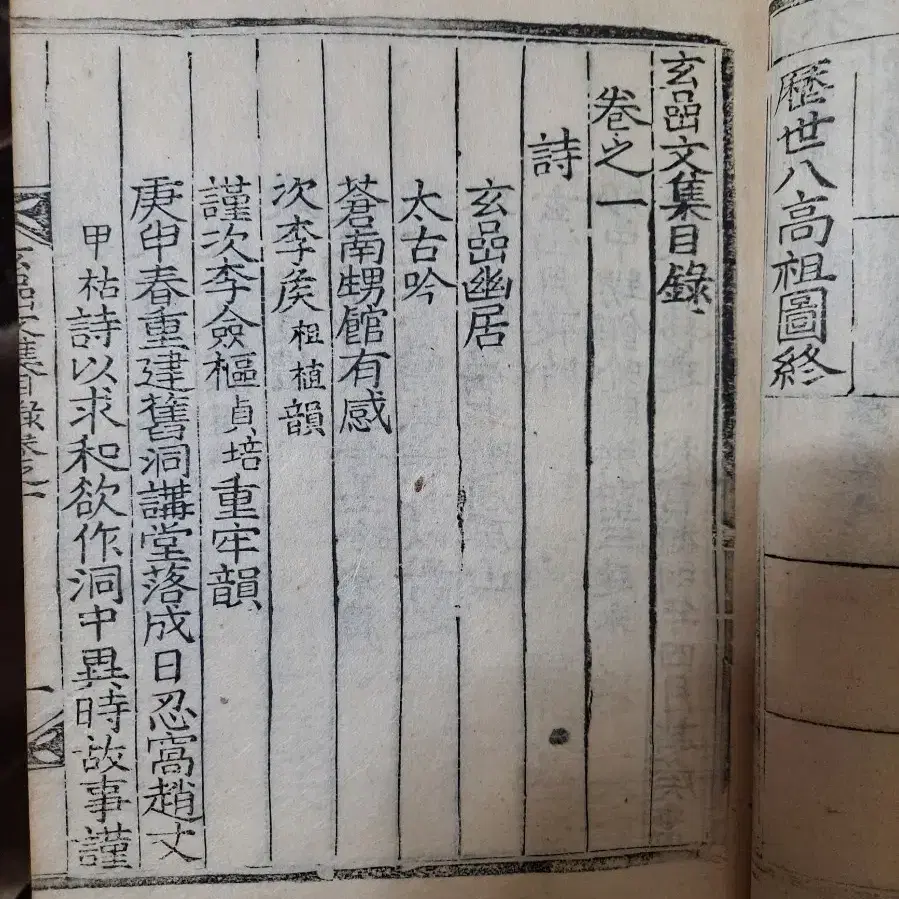 歷世八高祖圖終
玄嵒文集目錄
卷之一
詩
玄嵒幽居
太古吟
蒼南甥館有感
次李矦祖植韻
謹次李僉樞貞培重牢韻
庚申春重建舊洞講堂落成日忍窩趙丈
甲祜詩以求和欲作洞中異時故事謹
玄嵒文集目錄卷之一
一